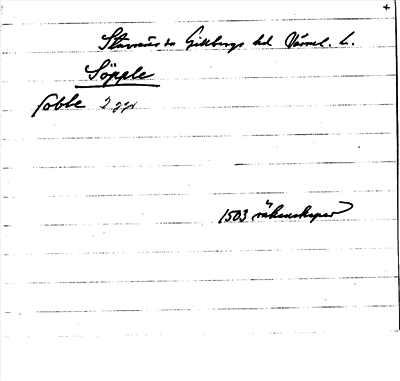 +
Stavnäs sn Gillbergs hd Värml. L.
Söpple
Soble 2 ggr
1503 räkenskaper